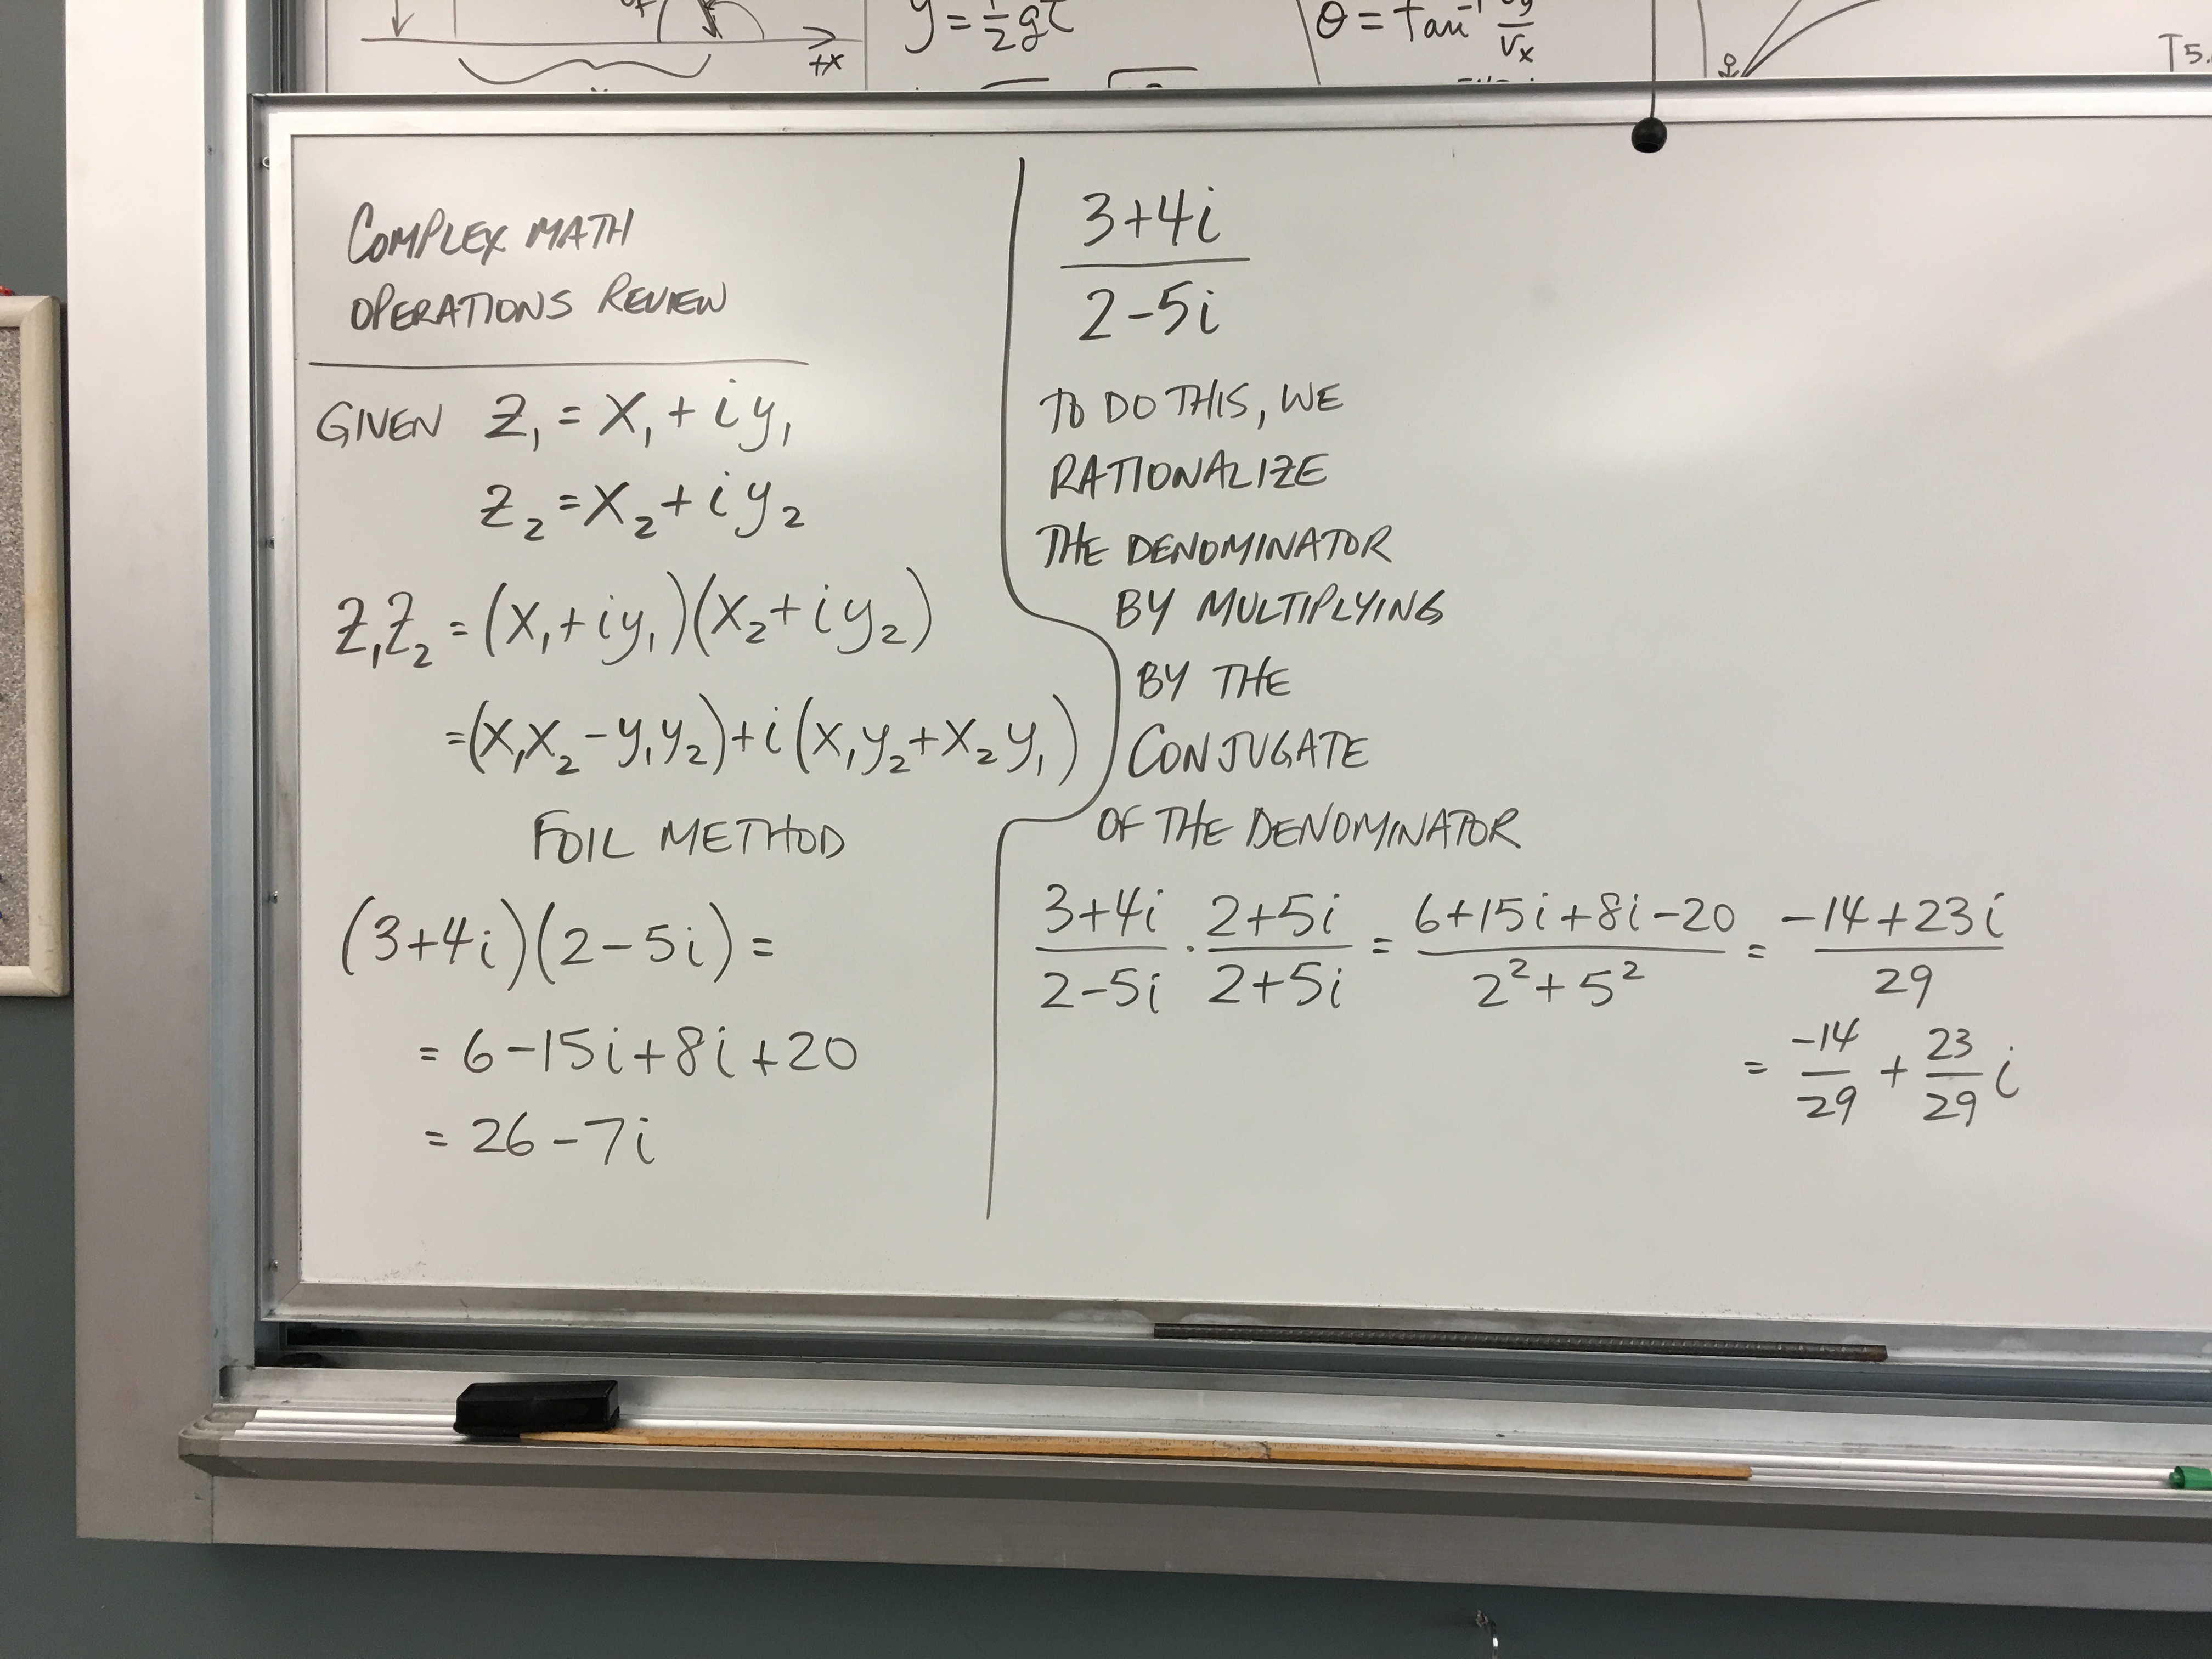 +x
θ = tan⁻¹ vy/vx
T5.
COMPLEX MATH
OPERATIONS REVIEW
GIVEN z₁ = x₁ + iy₁
z₂ = x₂ + iy₂
z₁z₂ = (x₁ + iy₁)(x₂ + iy₂)
= (x₁x₂ − y₁y₂) + i(x₁y₂ + x₂y₁)
FOIL METHOD
(3+4i)(2−5i) =
= 6−15i+8i+20
= 26−7i
3+4i
2−5i
TO DO THIS, WE
RATIONALIZE
THE DENOMINATOR
BY MULTIPLYING
BY THE
CONJUGATE
OF THE DENOMINATOR
(3+4i)/(2−5i) · (2+5i)/(2+5i) = (6+15i+8i−20)/(2²+5²) = (−14+23i)/29
= −14/29 + 23/29 i